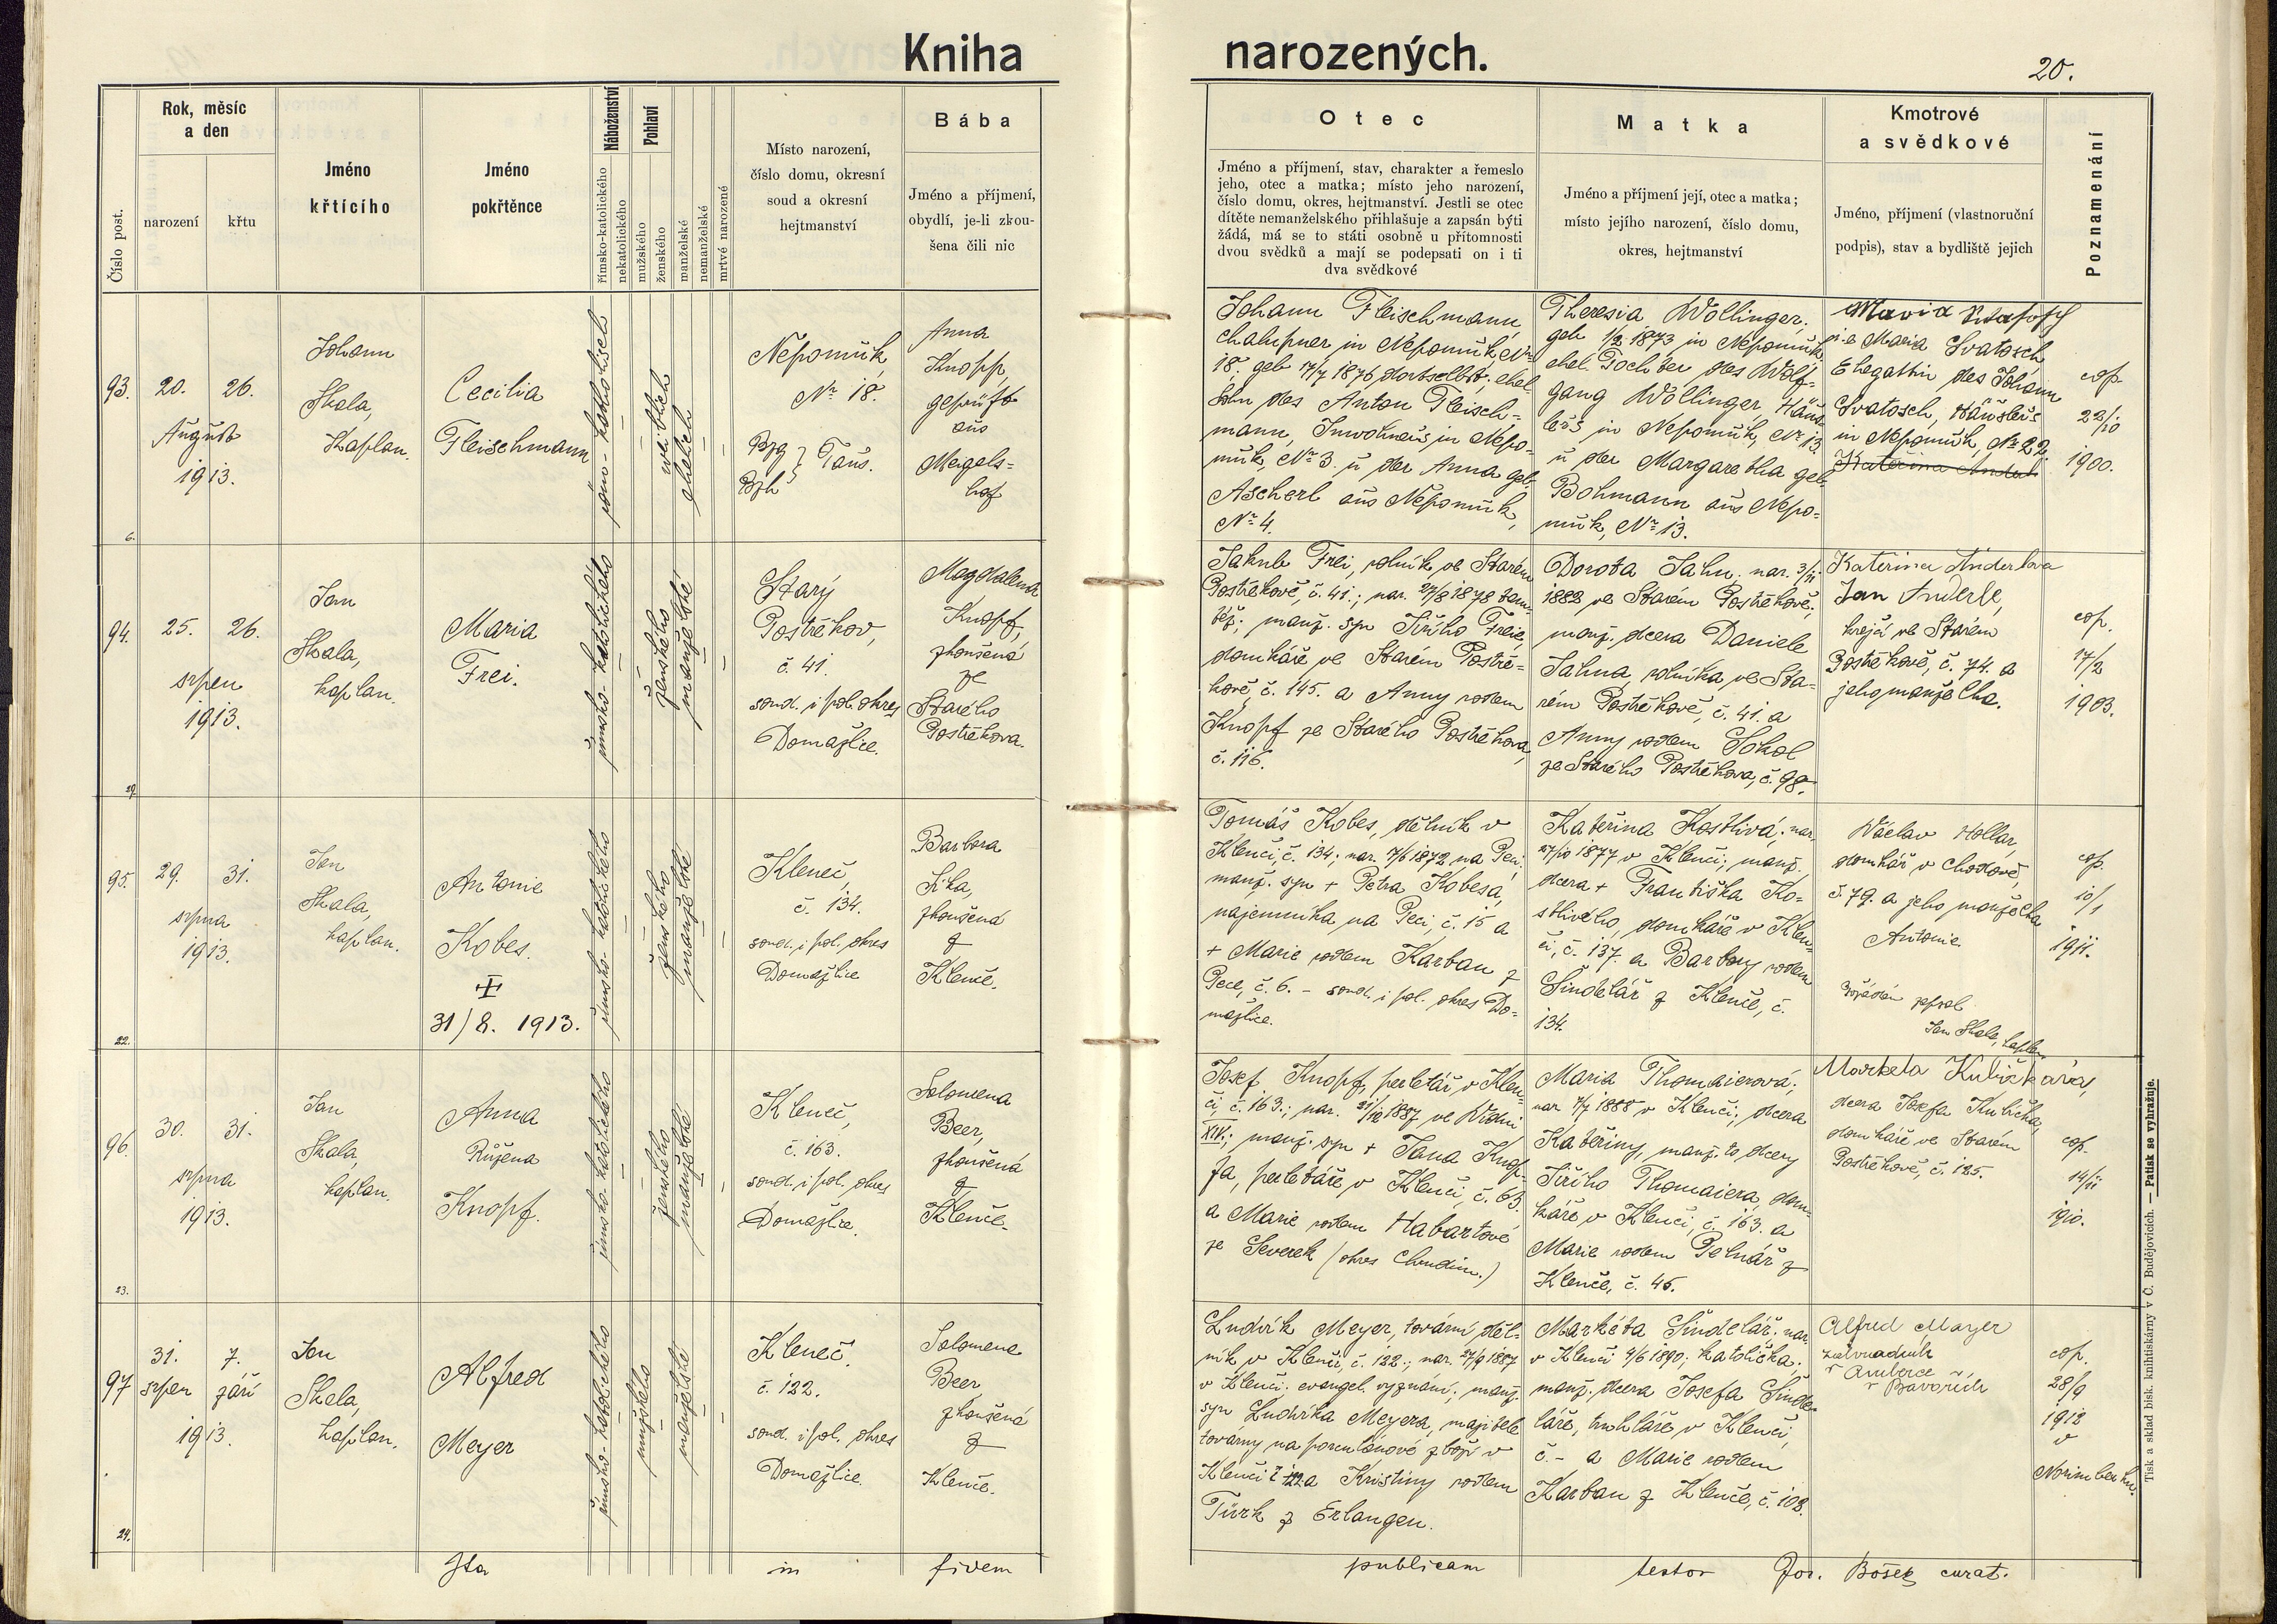 Kniha narozených.
20.
Číslo post.
Rok, měsíc
a den
narození
křtu
Jméno
křtícího
Jméno
pokřtěnce
Náboženství
římsko-katolického
nekatolického
Pohlaví
mužského
ženského
manželské
nemanželské
mrtvé narozené
Místo narození,
číslo domu, okresní
soud a okresní
hejtmanství
Bába
Jméno a příjmení,
obydlí, je-li zkou-
šena čili nic
Otec
Jméno a příjmení, stav, charakter a řemeslo
jeho, otec a matka; místo jeho narození,
číslo domu, okres, hejtmanství. Jestli se otec
dítěte nemanželského přihlašuje a zapsán býti
žádá, má se to státi osobně u přítomnosti
dvou svědků a mají se podepsati on i ti
dva svědkové
Matka
Jméno a příjmení její, otec a matka;
místo jejího narození, číslo domu,
okres, hejtmanství
Kmotrové
a svědkové
Jméno, příjmení (vlastnoruční
podpis), stav a bydliště jejich
Poznamenání
93.
6.
20. 26.
August
1913.
Johann
Skala,
Kaplan.
Cecilia
Fleischmann
röm-katholisch
weiblich
ehelich
Nepomuk,
Nr 18.
Bzg
Bzh } Taus.
Anna
Knopp,
geprüft
aus
Meigels-
hof
Johann Fleischmann,
Chalupner in Nepomuk, Nr
18. geb 17/7 1876 dortselbst. ehel.
Sohn des Anton Fleisch-
mann, Inwohners in Nepo-
muk, Nr 3. u der Anna geb.
Ascherl aus Nepomuk,
Nr 4.
Theresia Wöllinger.
geb 1/2 1873 in Nepomuk,
ehel. Tochter des Wolf-
gang Wöllinger, Häus-
lers in Nepomuk, Nr 13.
u der Margaretha geb.
Bohmann aus Nepo-
muk, Nr 13.
Maria Svatosch
i.e Maria Svatosch
Ehegattin des Johann
Svatosch, Häuslers
in Nepomuk, Nr 22.
Kateřina Anderl
cop.
22/10
1900.
94.
29.
25. 26.
srpen
1913.
Jan
Skala,
kaplan.
Maria
Frei.
římsko-katolického
ženského
manželské
Starý
Postřekov,
č. 41.
soud. i pol. okres
Domažlice.
Magdalena
Knopf,
zkoušená
ze
Starého
Postřekova.
Jakub Frei, rolník ve Starém
Postřekově, č. 41.; nar. 27/8 1878 tam
též; manž. syn Jiřího Freie,
domkáře ve Starém Postře-
kově, č. 145. a Anny rodem
Knopf ze Starého Postřekova,
č. 116.
Dorota Jahn. nar. 3/11
1882 ve Starém Postřekově;
manž. dcera Daniele
Jahna, rolníka ve Sta-
rém Postřekově, č. 41. a
Anny rodem Sokol
ze Starého Postřekova, č. 98.
Kateřina Anderlova
Jan Anderle,
krejčí ve Starém
Postřekově, č. 74. a
jeho manželka.
cop.
17/2
1903.
95.
22.
29. 31.
srpna
1913.
Jan
Skala,
kaplan.
Antonie
Kobes.
31/8. 1913.
římsko-katolického
ženského
manželské
Kleneč,
č. 134.
soud. i pol. okres
Domažlice
Barbora
Lka,
zkoušená
z
Klenče.
Tomáš Kobes, dělník v
Klenči, č. 134; nar. 7/6 1872 na Peci;
manž. syn + Petra Kobesa,
nájemníka na Peci, č. 15 a
+ Marie rodem Karban z
Pece, č. 6. – soud. i pol. okres Do-
mažlice.
Kateřina Kostlivá; nar.
27/10 1877 v Klenči; manž.
dcera + Františka Ko-
stlivého, domkáře v Klen-
či, č. 137. a Barbory rodem
Šindelář z Klenče, č.
134.
Václav Hollar,
domkář v Chodově,
č. 79. a jeho manželka
Antonie.
Jan Skala, kaplan
cop.
10/1
1911.
96.
23.
30. 31.
srpna
1913.
Jan
Skala,
kaplan.
Anna
Růžena
Knopf.
římsko-katolického
ženského
manželské
Kleneč,
č. 163.
soud. i pol. okres
Domažlice.
Salomena
Beer,
zkoušená
z
Klenče.
Josef Knopf, perletář v Klen-
či, č. 163.; nar. 21/12 1887 ve Vídni
XIV.; manž. syn + Jana Knop-
fa, perletáře v Klenči, č. 63.
a Marie rodem Habartové
ze Severek (okres Chrudim.)
Maria Thomaierová;
nar 7/7 1888 v Klenči; dcera
Kateřiny, manž. to dcery
Jiřího Thomaiera, dom-
káře v Klenči, č. 163. a
Marie rodem Pelnář z
Klenče, č. 45.
Markéta Kubičkova,
dcera Josefa Kubička,
domkáře ve Starém
Postřekově, č. 125.
cop.
14/11
1910.
97
24.
31. 7.
srpen září
1913.
Jan
Skala,
kaplan.
Alfred
Meyer
římsko-katolického
mužského
manželské
Kleneč.
č. 122.
soud. i pol. okres
Domažlice.
Salomena
Beer,
zkoušená
z
Klenče.
Ludvík Meyer, tovární děl-
ník v Klenči, č. 122.; nar. 27/9 1887
v Klenči. evangel. vyznání; manž.
syn Ludvíka Meyera, majitele
továrny na porculánové zboží v
Klenči č 122 a Kristiny rodem
Türk z Erlangen.
Markéta Šindelář; nar.
v Klenči 4/6 1890; katolička;
manž. dcera Josefa Šinde-
láře, truhláře v Klenči,
č. – a Marie rodem
Karban z Klenče, č. 108.
Alfred Mayer
zahradník
v Amberce
v Bavořích
cop.
28/9
1912
v
Norimberku.
Ita in fidem publicam testor Jos. Bošek curat.
Tisk a sklad bisk. knihtiskárny v Č. Budějovicích. — Patisk se vyhražuje.